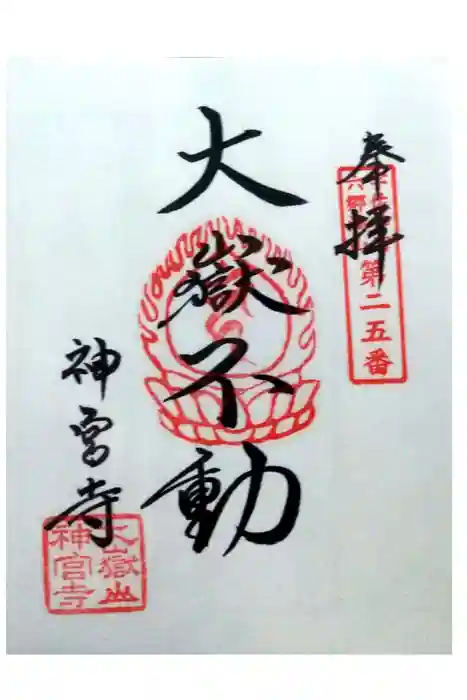 奉拝
六郷
第二五番
大嶽不動
神宮寺
大嶽山
神宮寺